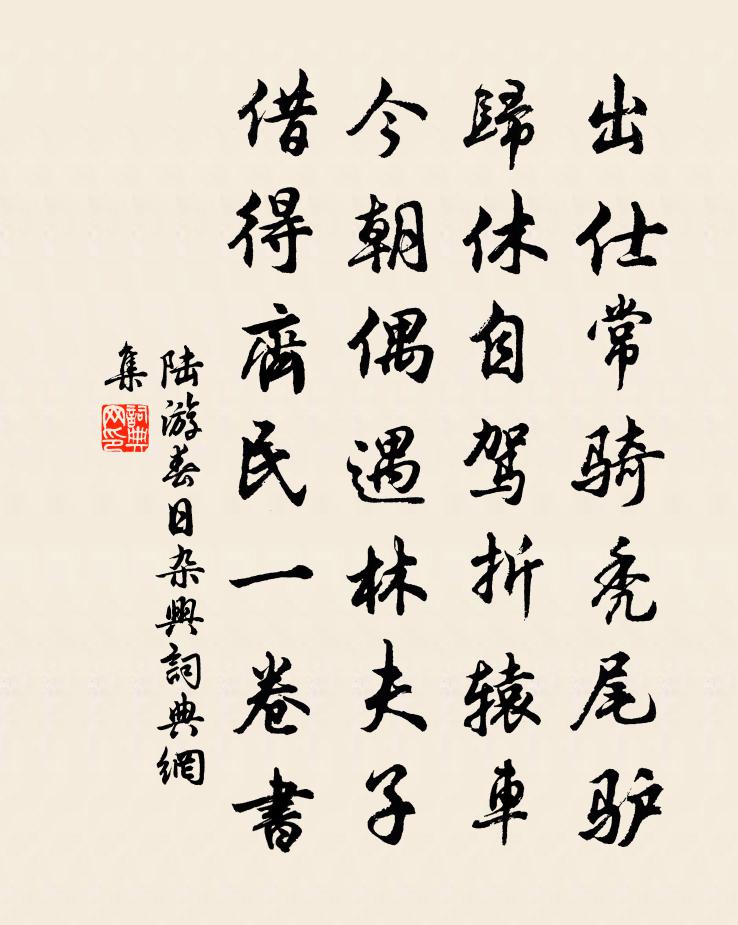 出仕常骑秃尾驴
歸休自驾折辕車
今朝偶遇林夫子
借得齊民一卷書
陆游春日杂興詞典網
集
詞典网印